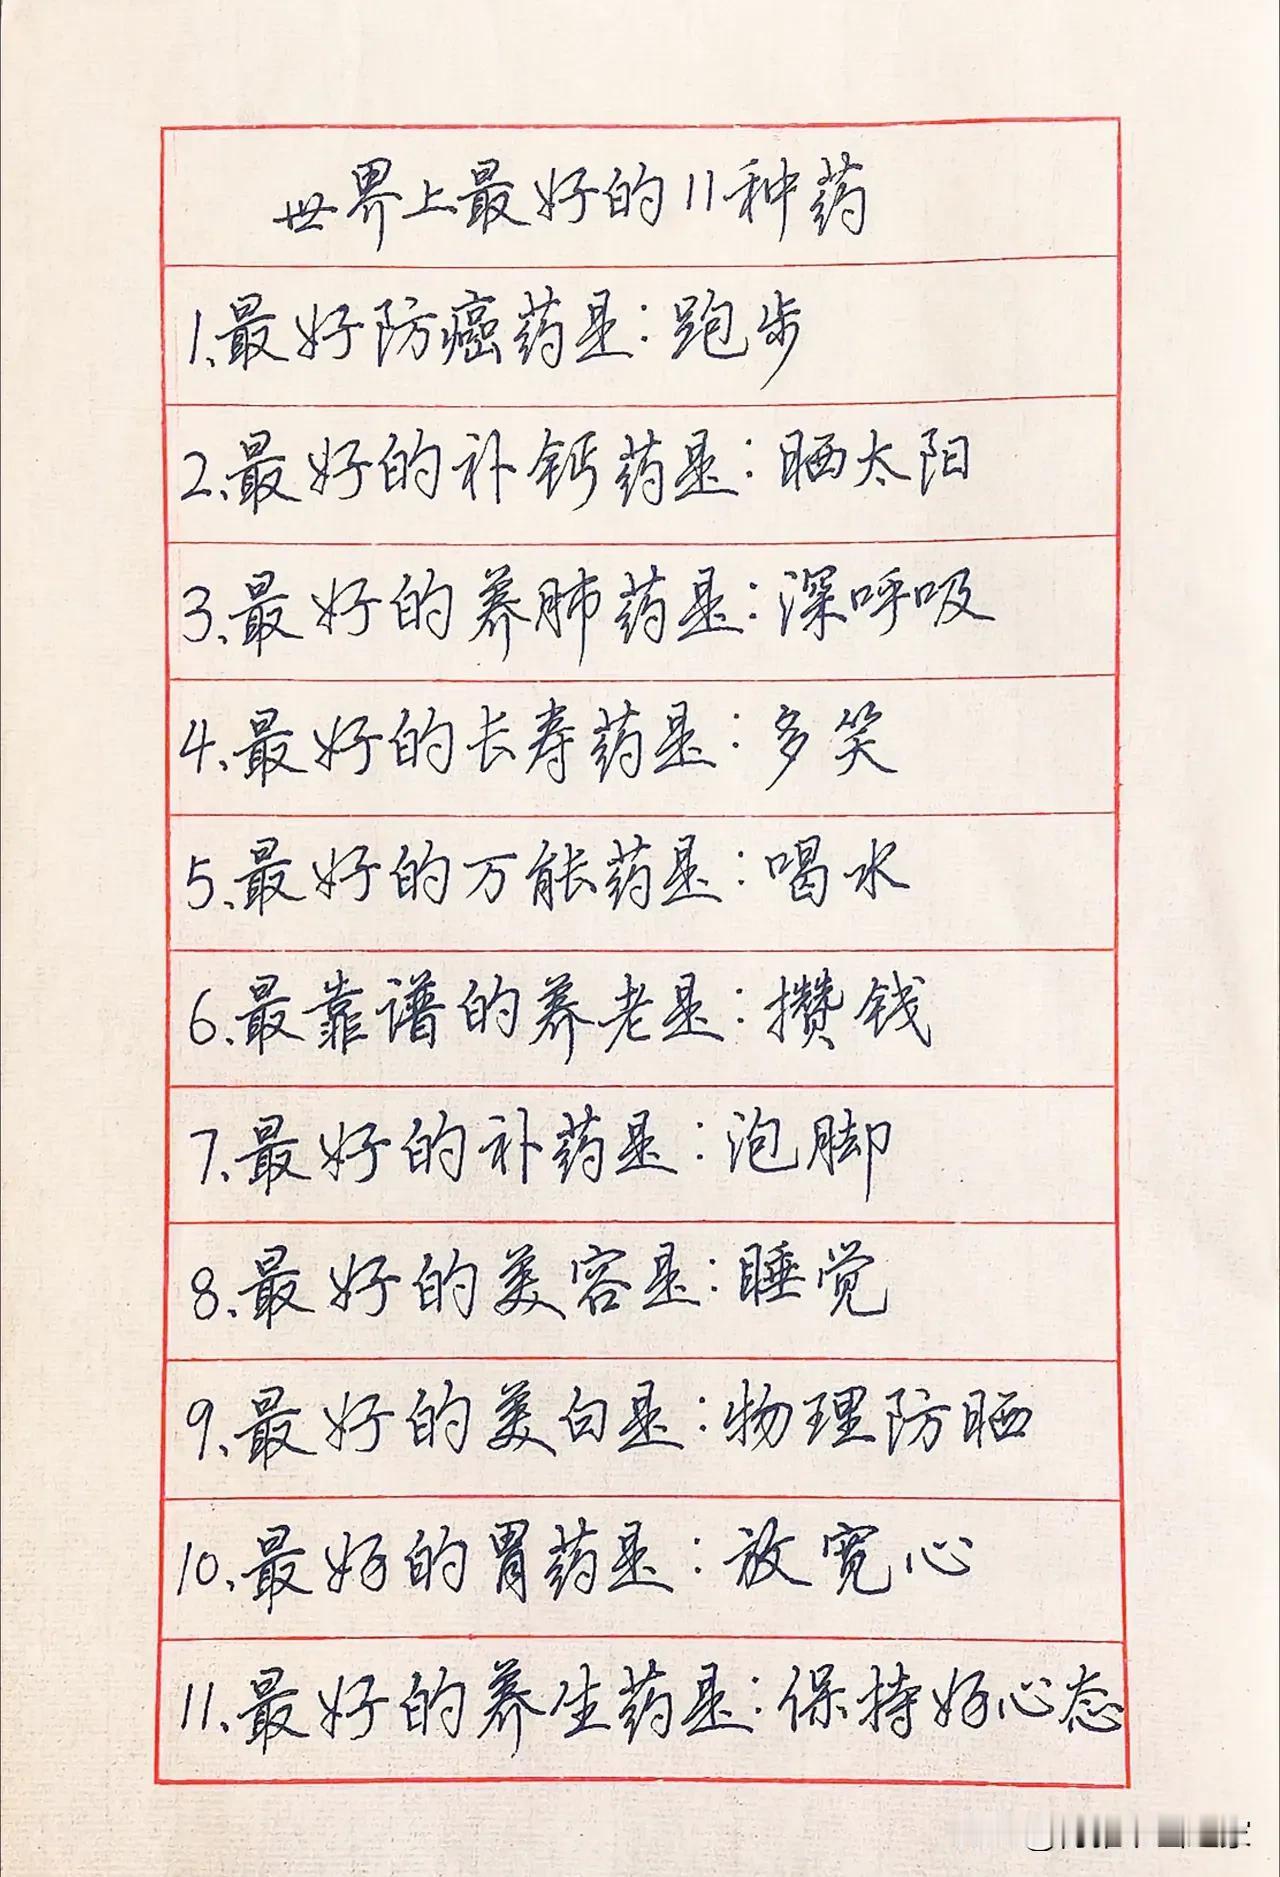 世界上最好的11种药
1、最好防癌药是：跑步
2、最好的补钙药是：晒太阳
3、最好的养肺药是：深呼吸
4、最好的长寿药是：多笑
5、最好的万能药是：喝水
6、最靠谱的养老是：攒钱
7、最好的补药是：泡脚
8、最好的美容是：睡觉
9、最好的美白是：物理防晒
10、最好的胃药是：放宽心
11、最好的养生药是：保持好心态